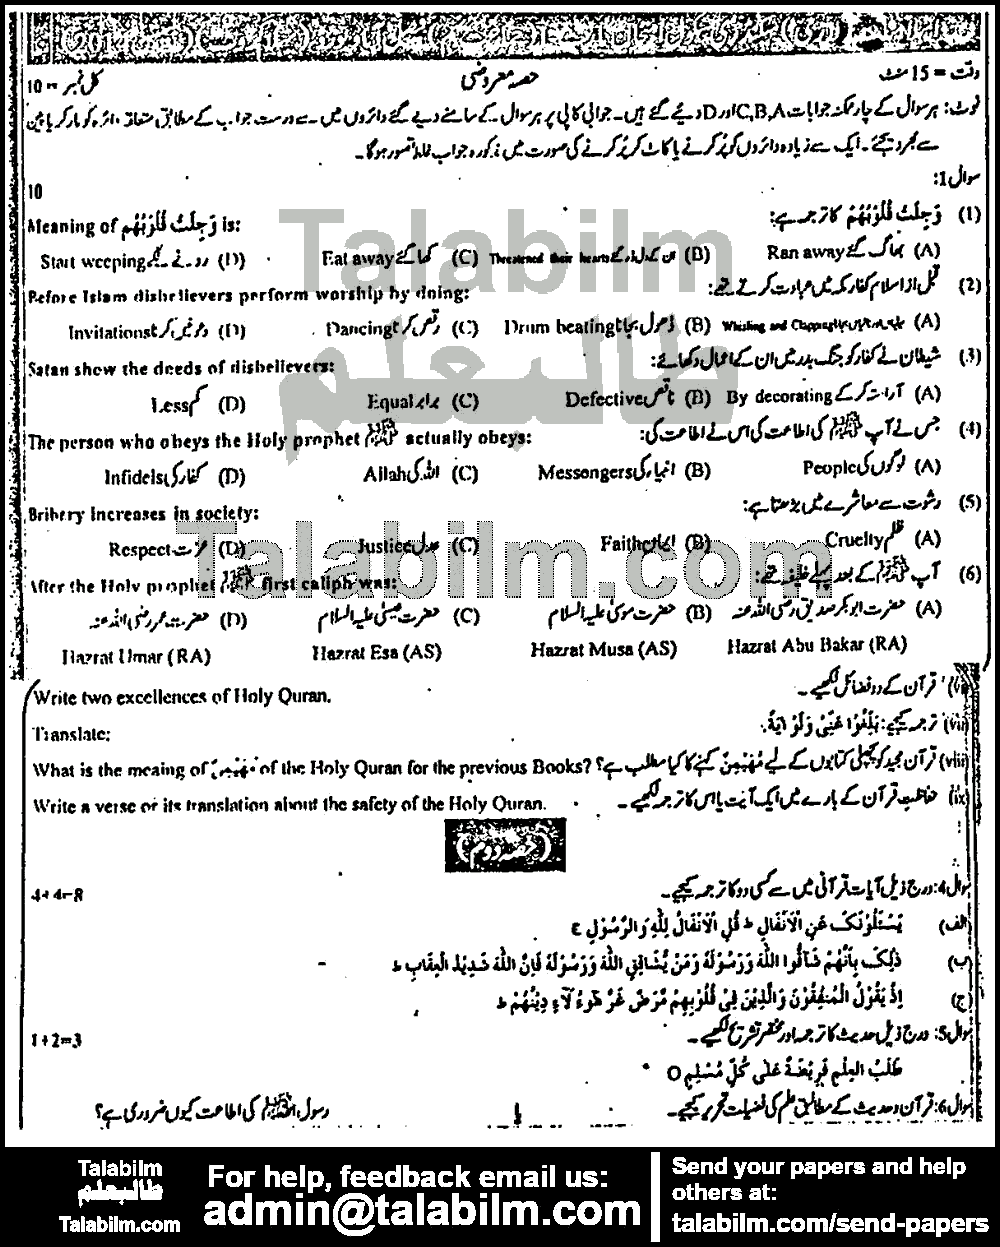 (2014)
وقت = 15 منٹ حصہ معروضی کل نمبر = 10
نوٹ: ہر سوال کے چار ممکنہ جوابات C,B,A اور D دیئے گئے ہیں۔ جوابی کاپی پر ہر سوال کے سامنے دیے گئے دائروں میں سے درست جواب کے مطابق متعلقہ دائرہ کو مارکر یا پین
سے بھر دیجئے۔ ایک سے زیادہ دائروں کو پُر کرنے یا کاٹ کر پُر کرنے کی صورت میں مذکورہ جواب غلط تصور ہوگا۔
سوال 1: 10
(1) وَجِلَتْ قُلُوْبُهُمْ کا ترجمہ ہے: Meaning of وَجِلَتْ قُلُوْبُهُمْ is:
(A) بھاگ گئے Ran away (B) ان کے دل ڈر گئے Threatened their hearts (C) کھا گئے Eat away (D) رونے لگے Start weeping
(2) قبل از اسلام کفار مکہ میں عبادت کرتے تھے: Before Islam disbelievers perform worship by doing:
(A) Whisling and Clapping (B) ڈھول بجا کر Drum beating (C) رقص کر کے Dancing (D) دعوتیں کر کے Invitations
(3) شیطان نے کفار کو جنگ بدر میں ان کے اعمال دکھائے: Satan show the deeds of disbelievers:
(A) آراستہ کر کے By decorating (B) ناقص Defective (C) برابر Equal (D) کم Less
(4) جس نے آپ ﷺ کی اطاعت کی اس نے اطاعت کی: The person who obeys the Holy prophet ﷺ actually obeys:
(A) لوگوں کی People (B) انبیاء کی Messongers (C) اللہ کی Allah (D) کفار کی Infidels
(5) رشوت سے معاشرے میں بڑھتا ہے: Bribery increases in society:
(A) ظلم Cruelty (B) ایمان Faith (C) عدل Justice (D) عزت Respect
(6) آپ ﷺ کے بعد پہلے خلیفہ تھے: After the Holy prophet ﷺ first caliph was:
(A) حضرت ابوبکر صدیق رضی اللہ عنہ (B) حضرت موسیٰ علیہ السلام (C) حضرت عیسیٰ علیہ السلام (D) حضرت عمر رضی اللہ عنہ
Hazrat Abu Bakar (RA) Hazrat Musa (AS) Hazrat Esa (AS) Hazrat Umar (RA)
(vi) قرآن کے دو فضائل لکھیے۔ Write two excellences of Holy Quran.
(vii) ترجمہ کیجیے: بَلِّغُوْا عَنِّیْ وَلَوْ اٰیَةً. Translate:
(viii) قرآن مجید کو پچھلی کتابوں کے لیے مُهَیْمِنْ کہنے کا کیا مطلب ہے؟ What is the meaing of مُهَیْمِنْ of the Holy Quran for the previous Books?
(ix) حفاظتِ قرآن کے بارے میں ایک آیت یا اس کا ترجمہ لکھیے۔ Write a verse or its translation about the safety of the Holy Quran.
(حصہ دوم)
سوال 4: درج ذیل آیات قرآنی میں سے کسی دو کا ترجمہ کیجیے۔ 4+4=8
(الف) یَسْئَلُوْنَکَ عَنِ الْاَنْفَالِ ط قُلِ الْاَنْفَالُ لِلّٰهِ وَالرَّسُوْلِ ع
(ب) ذٰلِکَ بِاَنَّهُمْ شَآقُّوا اللّٰهَ وَرَسُوْلَهٗ وَمَنْ یُّشَاقِقِ اللّٰهَ وَرَسُوْلَهٗ فَاِنَّ اللّٰهَ شَدِیْدُ الْعِقَابِ ط
(ج) اِذْ یَقُوْلُ الْمُنٰفِقُوْنَ وَالَّذِیْنَ فِیْ قُلُوْبِهِمْ مَّرَضٌ غَرَّ هٰٓؤُلَآءِ دِیْنُهُمْ ط
سوال 5: درج ذیل حدیث کا ترجمہ اور مختصر تشریح لکھیے۔ 1+2=3
طَلَبُ الْعِلْمِ فَرِیْضَةٌ عَلٰی کُلِّ مُسْلِمٍ O
سوال 6: قرآن و حدیث کے مطابق علم کی فضیلت تحریر کیجیے۔ یا رسول اللہ ﷺ کی اطاعت کیوں ضروری ہے؟
Talabilm
طالبعلم
Talabilm.com
Talabilm
طالبعلم
Talabilm.com
For help, feedback email us:
admin@talabilm.com
Send your papers and help
others at:
talabilm.com/send-papers